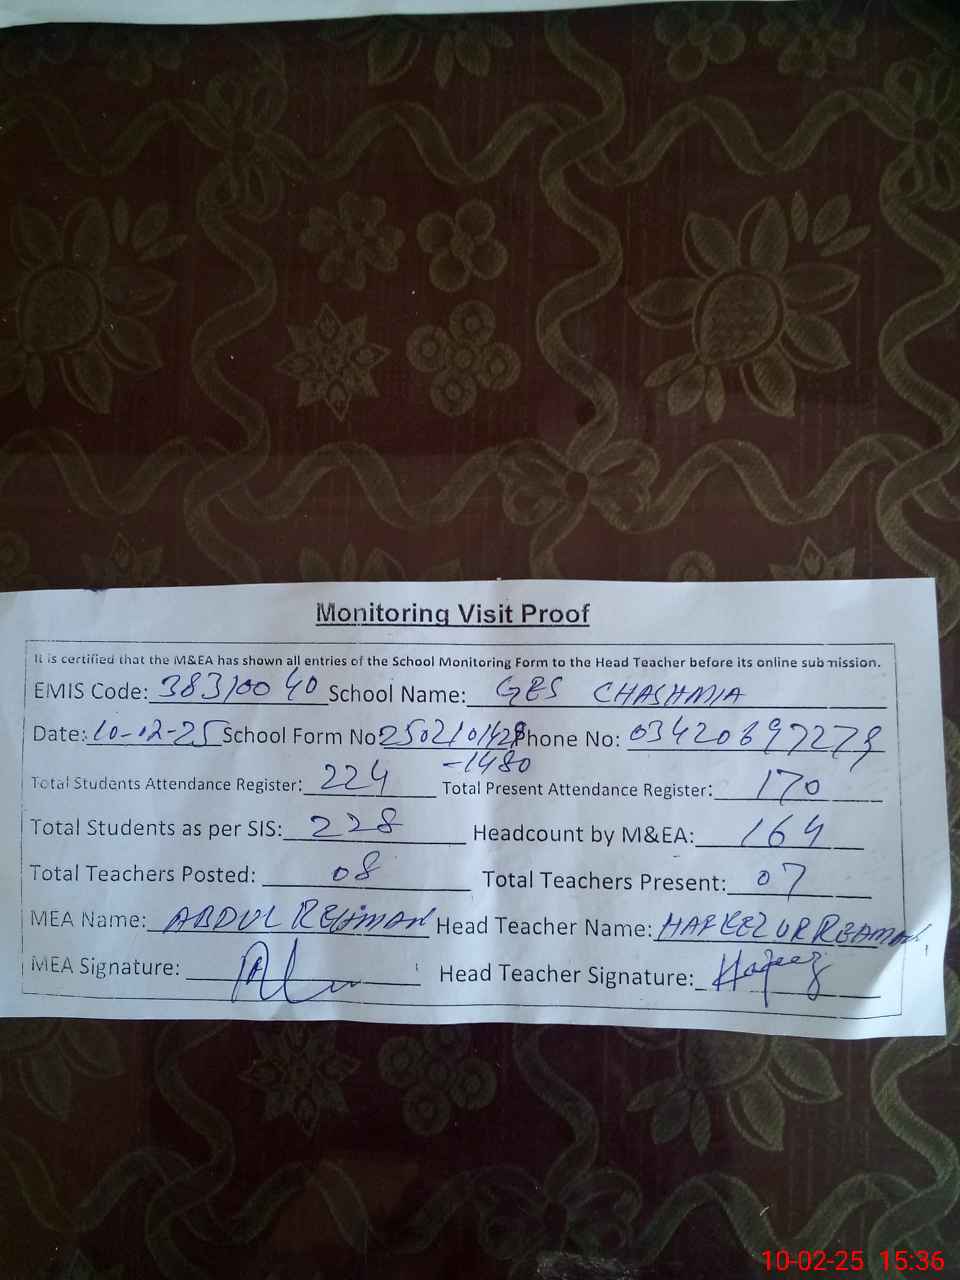 Monitoring Visit Proof
It is certified that the M&EA has shown all entries of the School Monitoring Form to the Head Teacher before its online submission.
EMIS Code: 38310040 School Name: GES CHASHMIA
Date: 10-02-25 School Form No 2502101428 Phone No: 03420697279
-1480
Total Students Attendance Register: 224 Total Present Attendance Register: 170
Total Students as per SIS: 228 Headcount by M&EA: 164
Total Teachers Posted: 08 Total Teachers Present: 07
MEA Name: ABDUL REHMAN Head Teacher Name: HAFEEZ UR REAMAN
MEA Signature: Head Teacher Signature: Hafeez
10-02-25 15:36